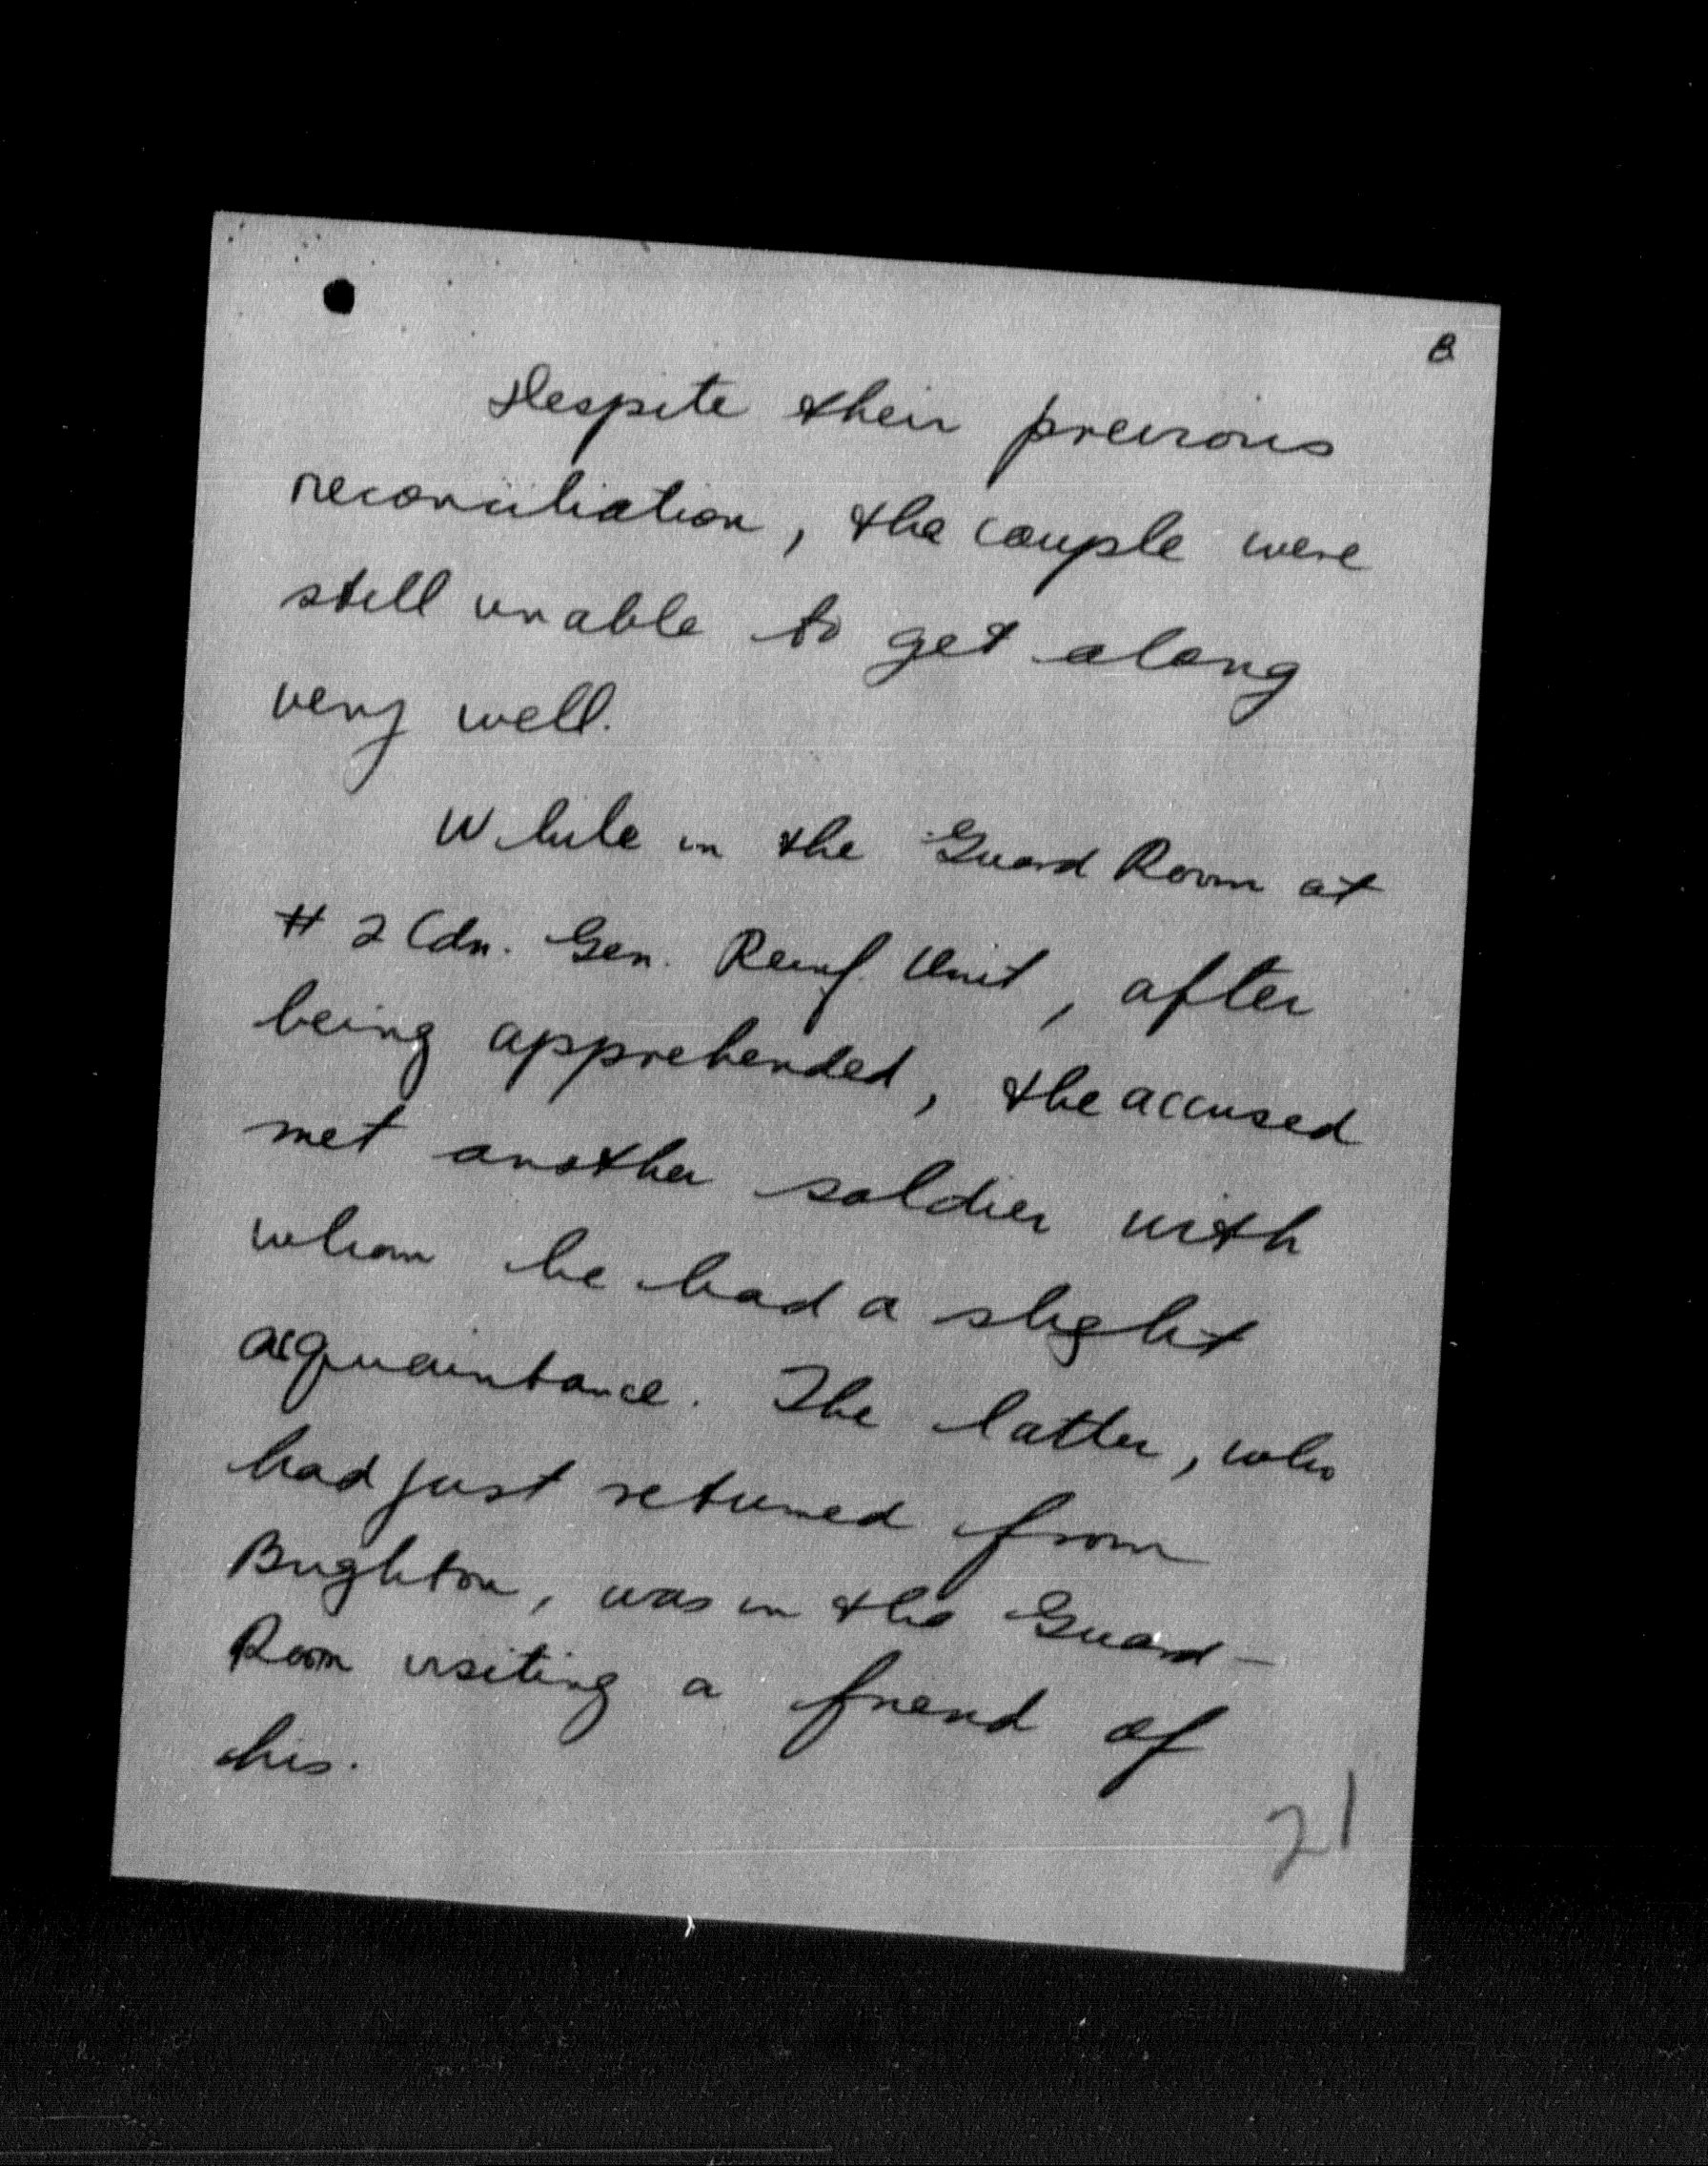 8
Despite their previous
reconciliation, the couple were
still unable to get along
very well.
While in the Guard Room at
# 2 Cdn. Gen. Reinf. Unit, after
being apprehended, the accused
met another soldier with
whom he had a slight
acquaintance. The latter, who
had just returned from
Brighton, was in the Guard-
Room visiting a friend of
his.
21